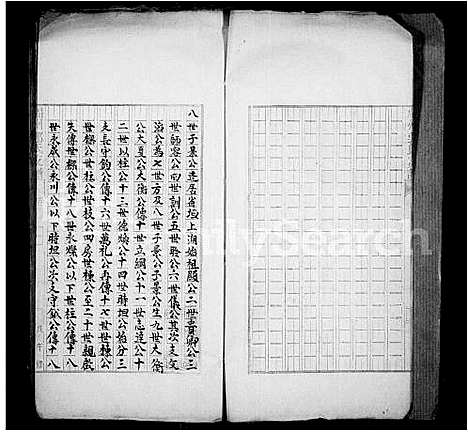 八世子景公遷居省垣上湖始祖願公二世壽卿公三
世師容公四世訓公五世聆公六世儀公其次支文
滔公為七世方及八世子景公子景公生九世大衛
公大道公大衛公傳十世立綱公十一世志達公十
二世以柱公十三世德煥公十四世時坦公始分三
支長守鈞公傳十六世萬札公再傳十七世世棟公
世鏘公世柱公世枝公四房世棟公至二十世親戲
失傳世鏘公傳十八世永爍公以下世柱公傳十八
世永盛公永川公以下時坦公次支守鈇公傳十八